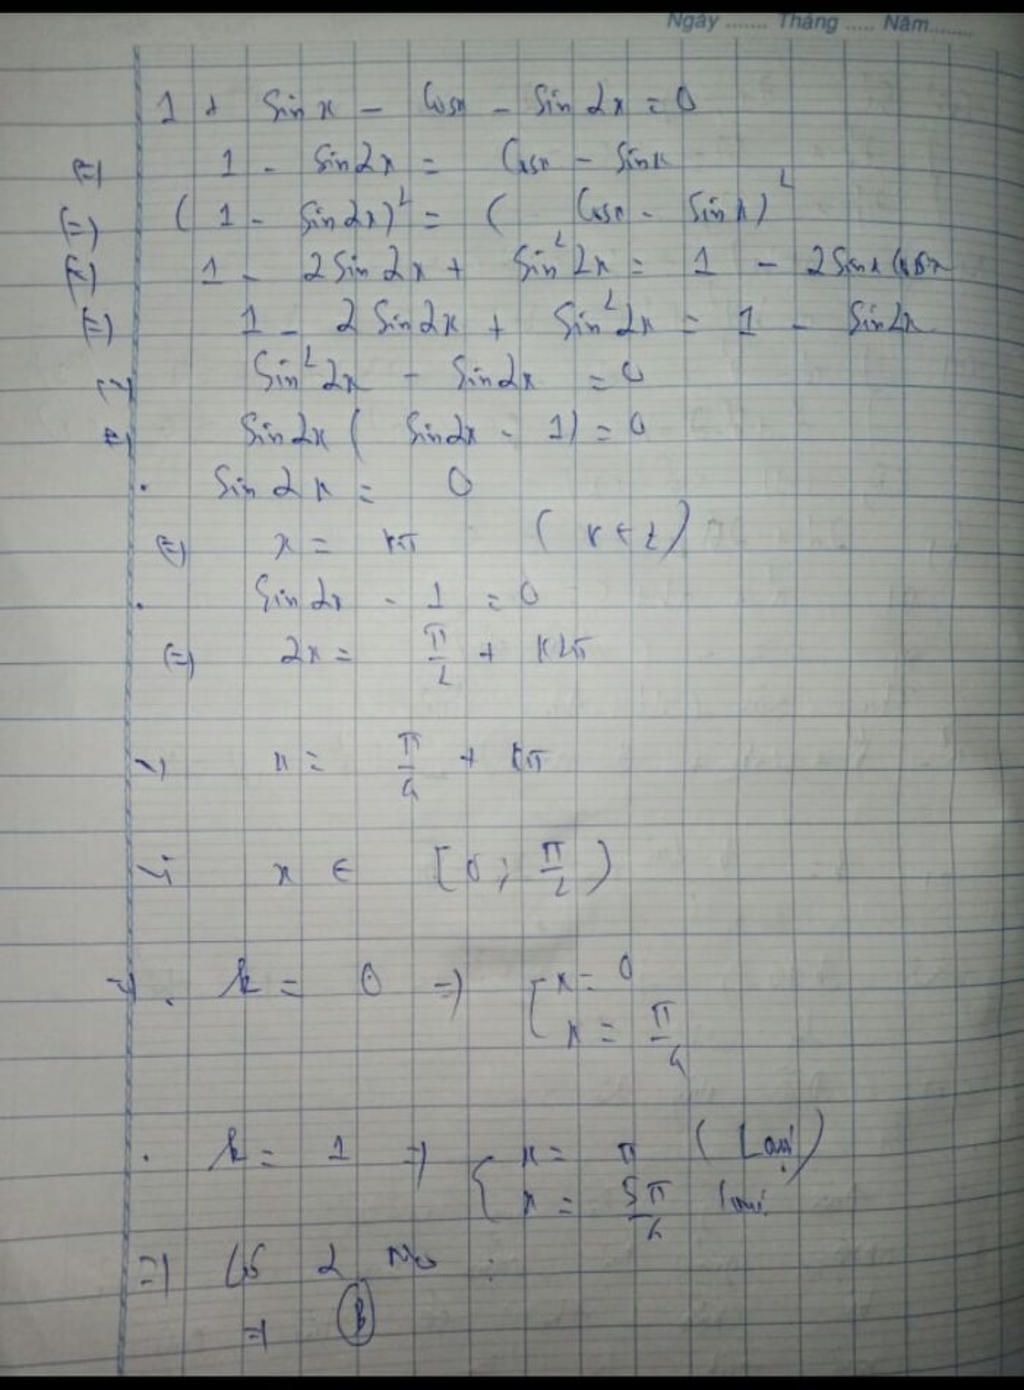 Ngày ....... Tháng ..... Năm........
1 + Sin x - Cosx - Sin 2x = 0
(=) 1 - Sin2x = Cosx - Sinx
(=) ( 1 - Sin2x)² = ( Cosx - Sinx)²
(=) 1 - 2Sin2x + Sin²2x = 1 - 2Sinx Cosx
(=) 1 - 2Sin2x + Sin²2x = 1 - Sin2x
(=) Sin²2x - Sin2x = 0
(=) Sin2x ( Sin2x - 1) = 0
. Sin 2x = 0
(=) x = kπ (k ∈ Z)
. Sin 2x - 1 = 0
(=) 2x = π/2 + k2π
=) x = π/4 + kπ
Vì x ∈ [0; π/2)
=) . k = 0 =) [ x = 0
x = π/4
. k = 1 =) { x = π (Loại)
x = 5π/4 Loại
=) Có 2 No
=) B